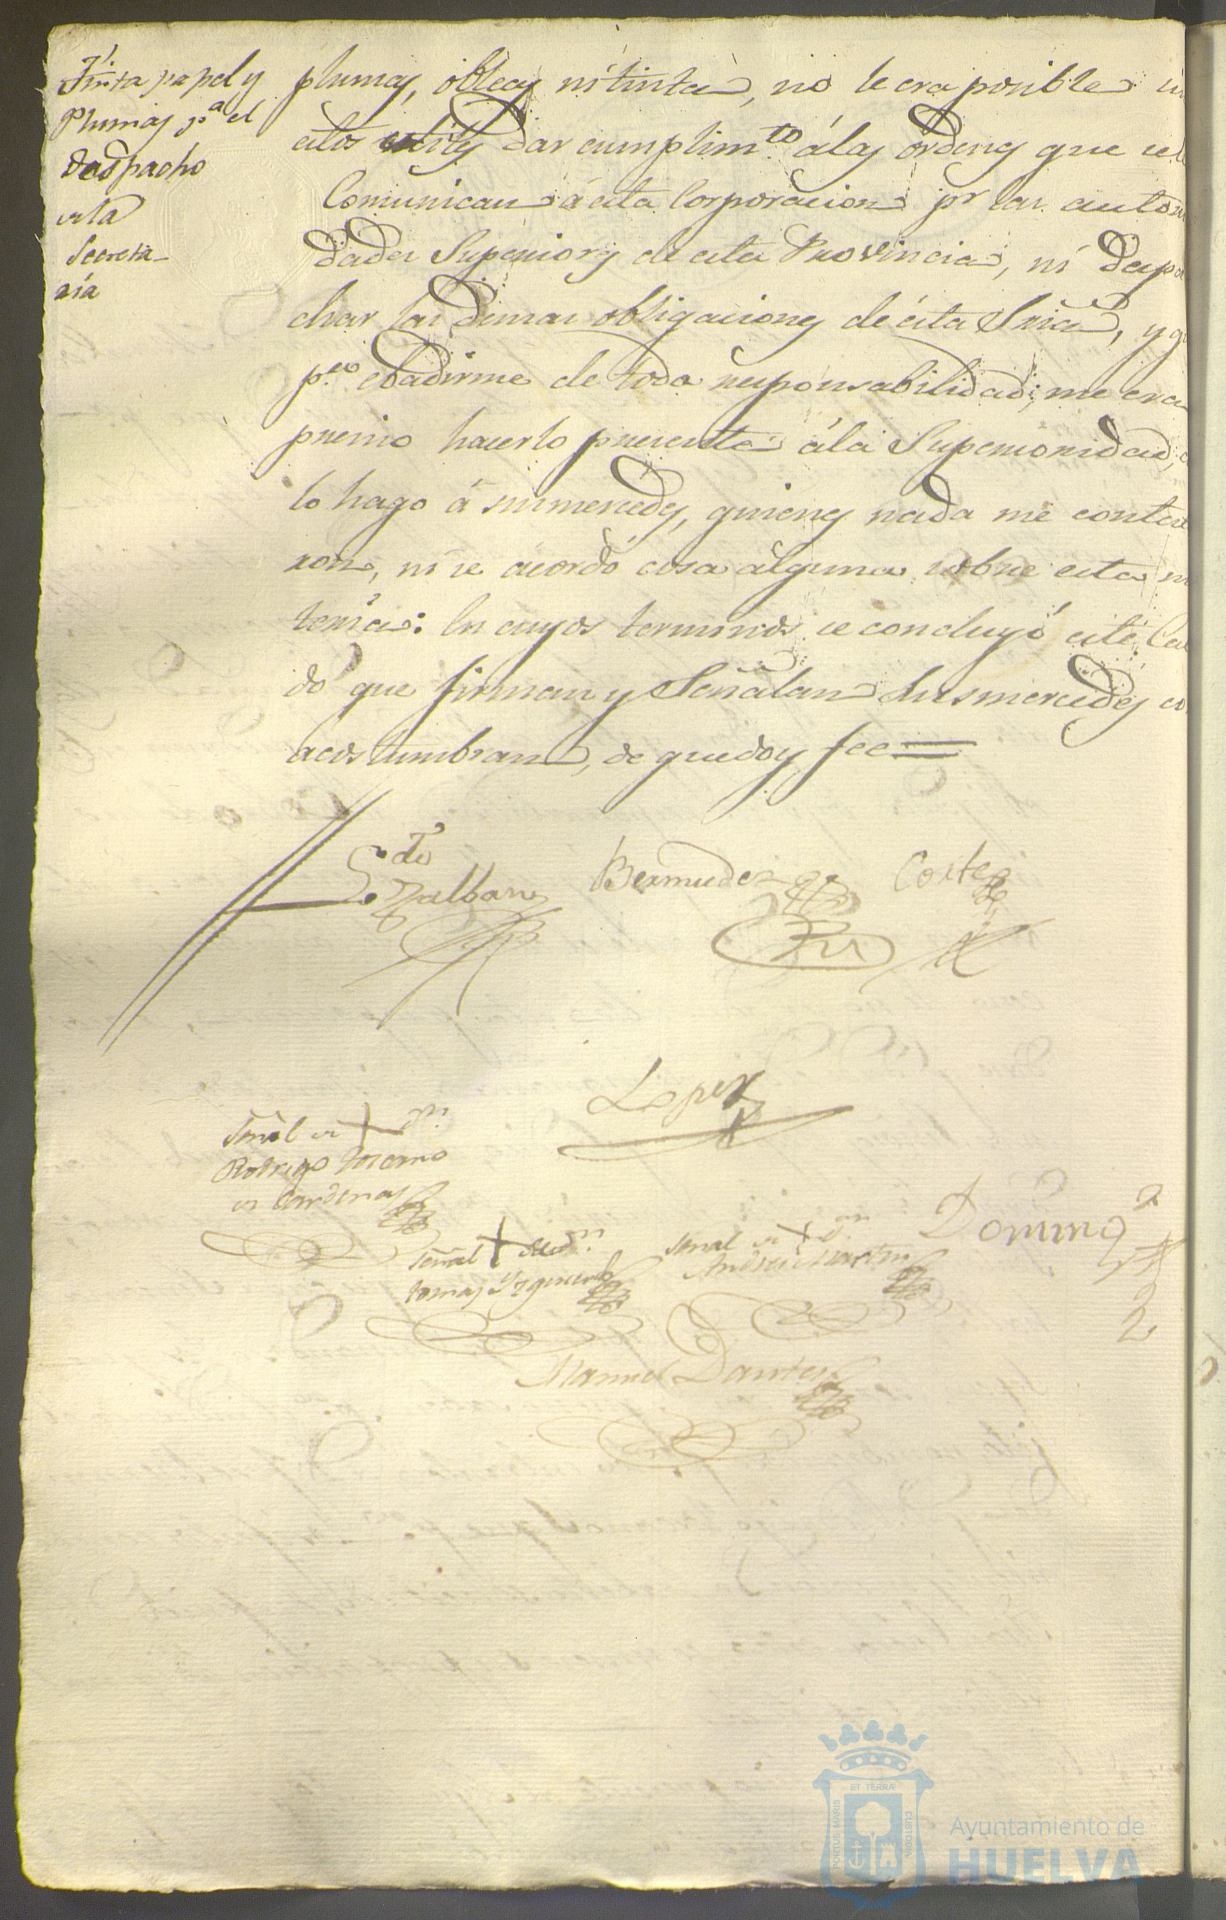 Tinta papel y
Plumas pª el
Despacho
de la
Secreta-
ria
plumas, obleas ni tinta, no le era posible
estos utiles dar cumplim.to á las órdenes que se le
Comunican á esta Corporacion pr las autori
dades Superiores de esta Provincia, ni despa
char las demas obligaciones de ésta Sria, y q
p.ro ebadirme de toda responsabilidad; me era
preciso hacerlo presente á la Superioridad,
lo hago á sus mercedes, quienes nada me contexta
ron, ni se acordó cosa alguna sobre esta ma
teria: En cuyos terminos se concluyó este Cavil
do que firman y Señalan Sus mercedes co
acostumbran, de que doy fee=
Bermudez
Cortes
Lopez
Señal de + Dn.
Rodrigo Moreno
de Cardenas
Señal + de Dn.
Tomas Yzquierdo
Señal de + Dn
Andres Martin
Doming
Manuel Dantes
PORTUS MARIS
ET TERRÆ
CUSTODIA
Ayuntamiento de
HUELVA